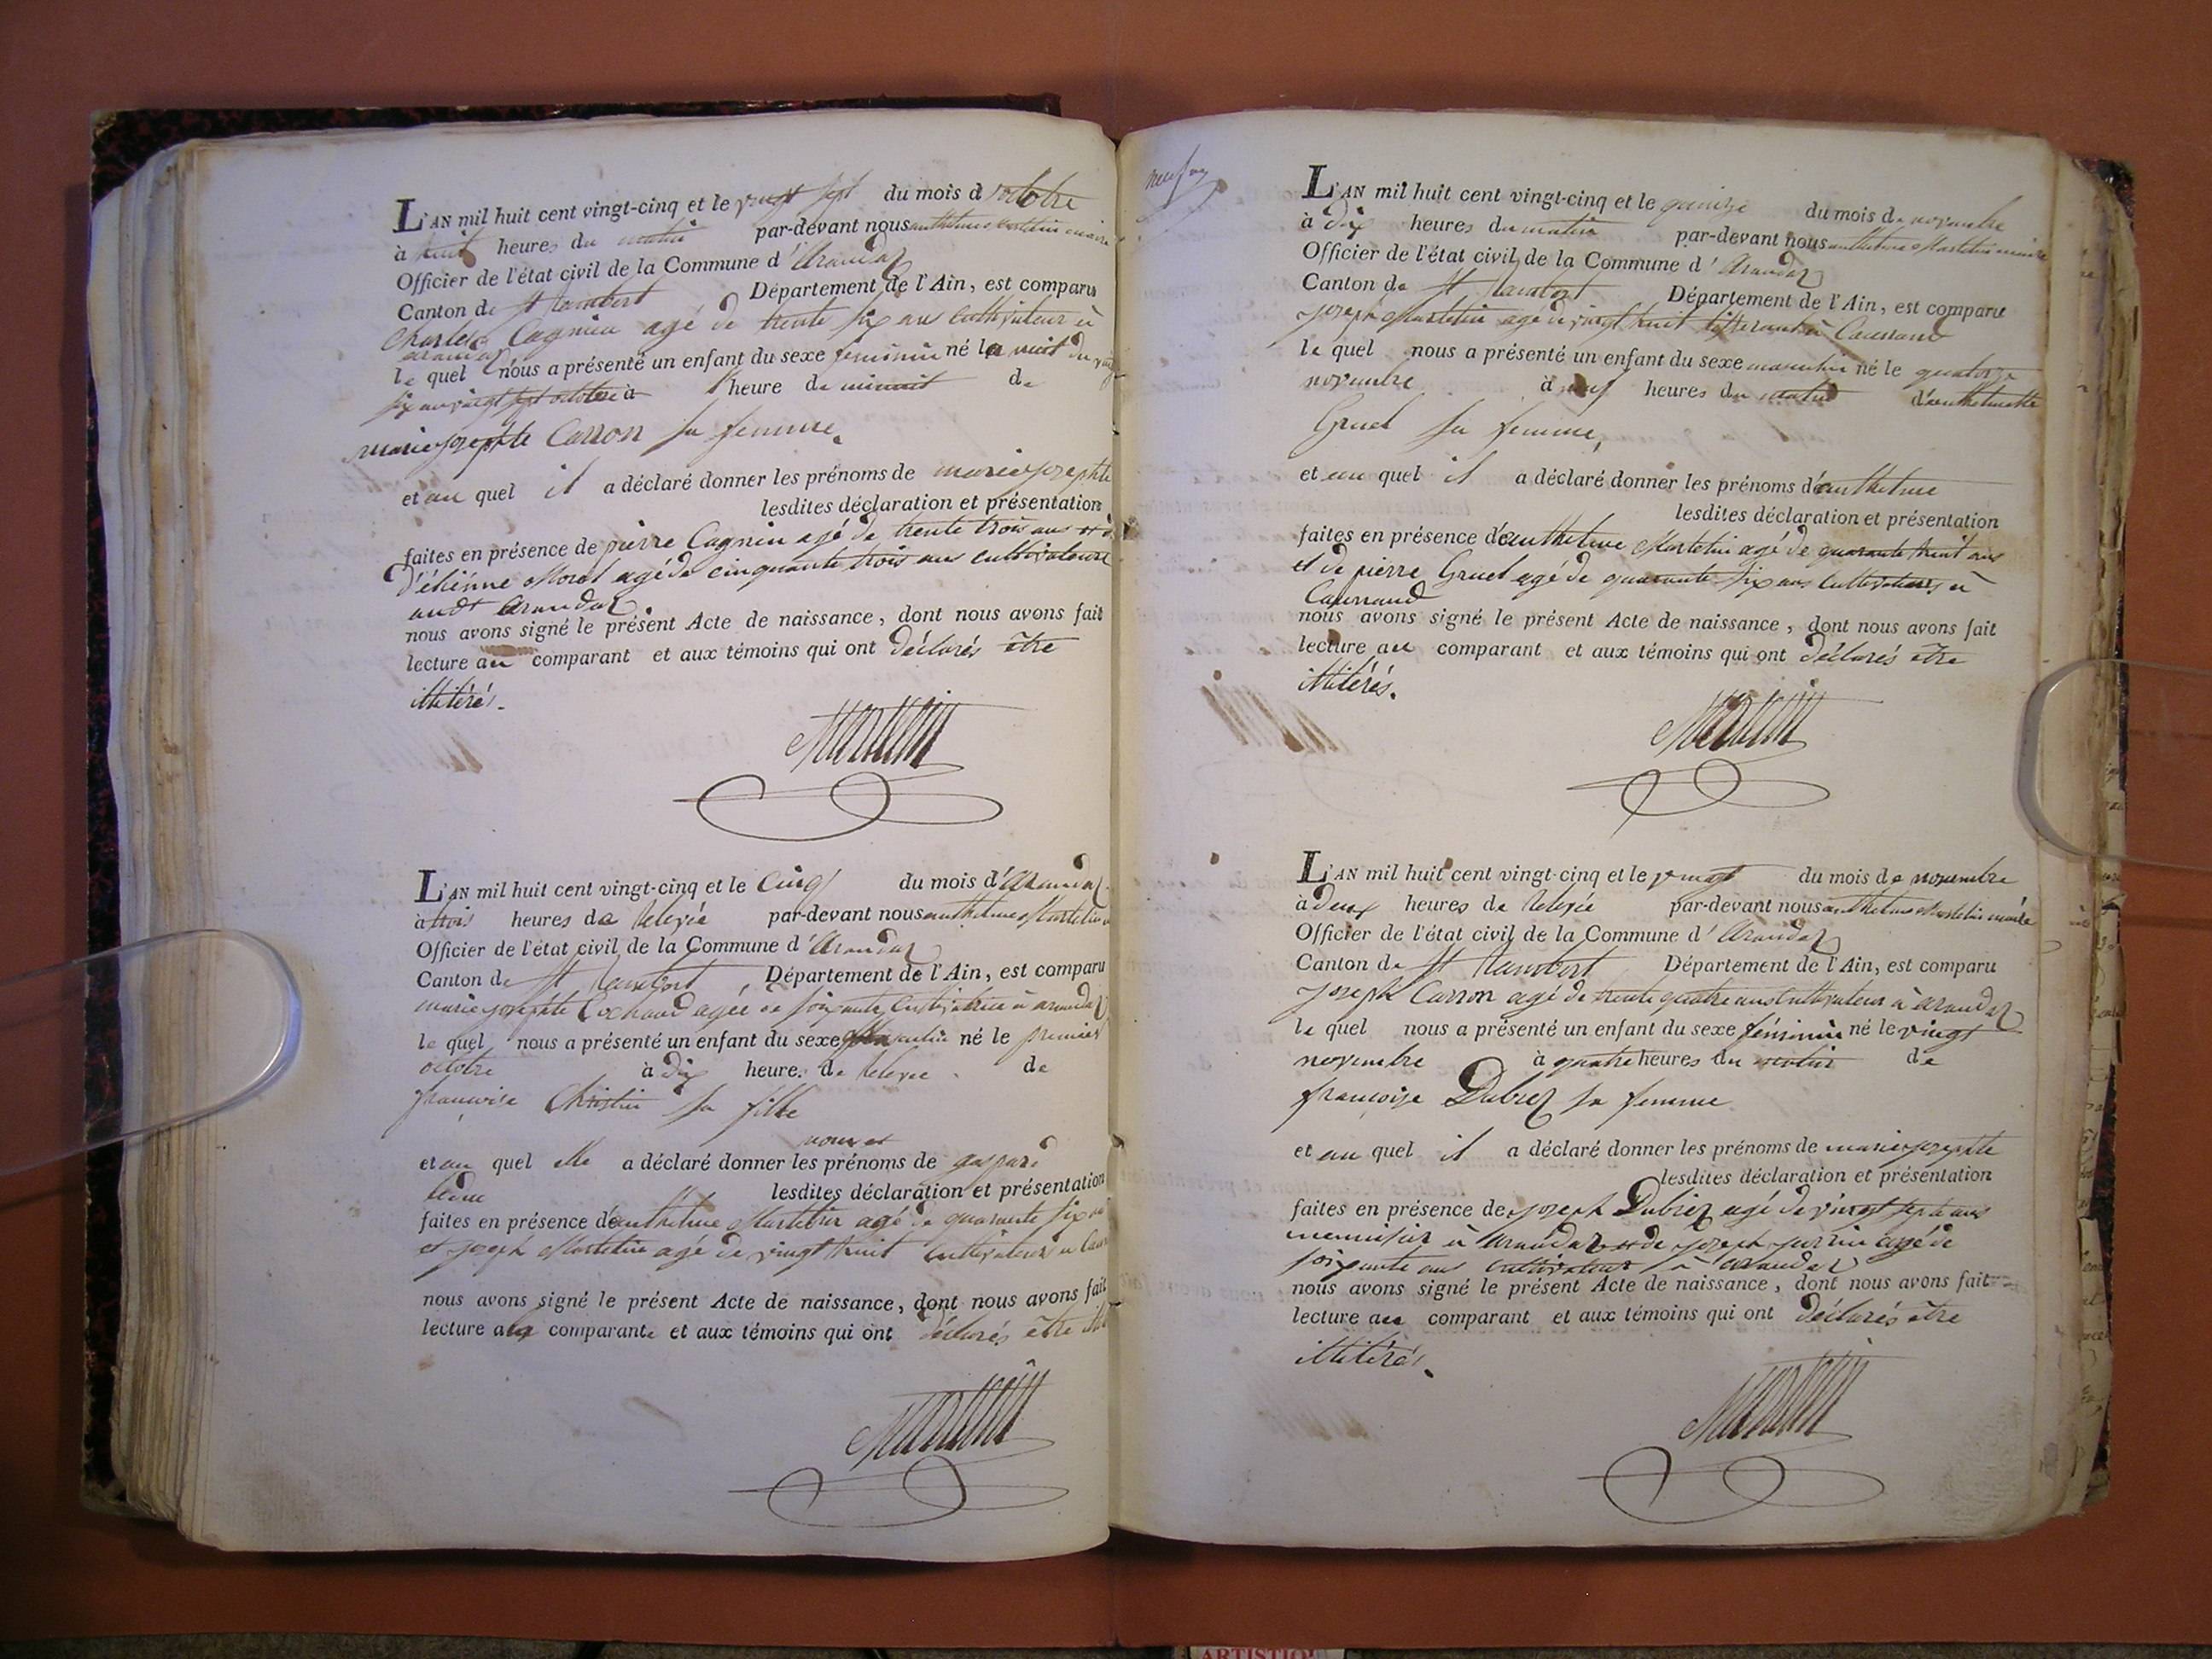 L'AN mil huit cent vingt-cinq et le vingt sept du mois d'octobre
à huit heures du matin par-devant nous anthelme Martelin maire
Officier de l'état civil de la Commune d'Arandaz
Canton de St Rambert Département de l'Ain, est comparu
Charles Cagnin agé de trente six ans Cultivateur à
arandaz
le quel nous a présenté un enfant du sexe feminin né la nuit du vingt
six au vingt sept octobre à heure de minuit de
marie josephte Carron sa femme
et au quel il a déclaré donner les prénoms de marie josephte
lesdites déclaration et présentation
faites en présence de pierre Cagnin agé de trente trois ans et
d'étiénne Morel agé de cinquante trois ans cultivateurs
audt Arandaz
nous avons signé le présent Acte de naissance, dont nous avons fait
lecture au comparant et aux témoins qui ont déclarés être
illitérés.
Martelin
L'AN mil huit cent vingt-cinq et le Cinq du mois d'Arandaz
à trois heures de Relevée par-devant nous anthelme Martelin
Officier de l'état civil de la Commune d'Arandaz
Canton de St Rambert Département de l'Ain, est comparu
marie josephte Cochaud agée de soixante Cultivatrice à arandaz
le quel nous a présenté un enfant du sexe Masculin né le premier
octobre à dix heure de Relevee de
françoise Christin sa fille
nom et
et au quel elle a déclaré donner les prénoms de gaspard
lesdites déclaration et présentation
faites en présence d'anthelme Martelin agé de quarante six
et joseph Martelin agé de vingt huit Cultivateurs a
nous avons signé le présent Acte de naissance, dont nous avons fait
lecture a la comparante et aux témoins qui ont déclarés être
Martelin
L'AN mil huit cent vingt-cinq et le quinze du mois de novembre
à dix heures du matin par-devant nous anthelme Martelin maire
Officier de l'état civil de la Commune d'Arandaz
Canton de St Rambert Département de l'Ain, est comparu
joseph Martelin agé de vingt huit à
le quel nous a présenté un enfant du sexe masculin né le quatorze
novembre à neuf heures du matin d'anthelmette
Gruel sa femme,
et au quel il a déclaré donner les prénoms d'anthelme
lesdites déclaration et présentation
faites en présence d'anthelme Martelin agé de quarante huit ans
et de pierre Gruel agé de quarante six ans Cultivateurs à
nous avons signé le présent Acte de naissance, dont nous avons fait
lecture au comparant et aux témoins qui ont déclarés être
illitérés.
Martelin
L'AN mil huit cent vingt-cinq et le vingt du mois de novembre
à deux heures de Relevée par-devant nous anthelme Martelin maire
Officier de l'état civil de la Commune d'Arandaz
Canton de St Rambert Département de l'Ain, est comparu
joseph Carron agé de trente quatre ans Cultivateur à arandaz
le quel nous a présenté un enfant du sexe féminin né le vingt
novembre à quatre heures du matin de
françoise Dubrez sa femme
et au quel il a déclaré donner les prénoms de marie josephte
lesdites déclaration et présentation
faites en présence de joseph Dubrez agé de vingt sept ans
menuisier à arandaz et de joseph agé de
soixante ans Cultivateur à arandaz
nous avons signé le présent Acte de naissance, dont nous avons fait
lecture au comparant et aux témoins qui ont déclarés être
illitérés.
Martelin
ARTISTIQUE